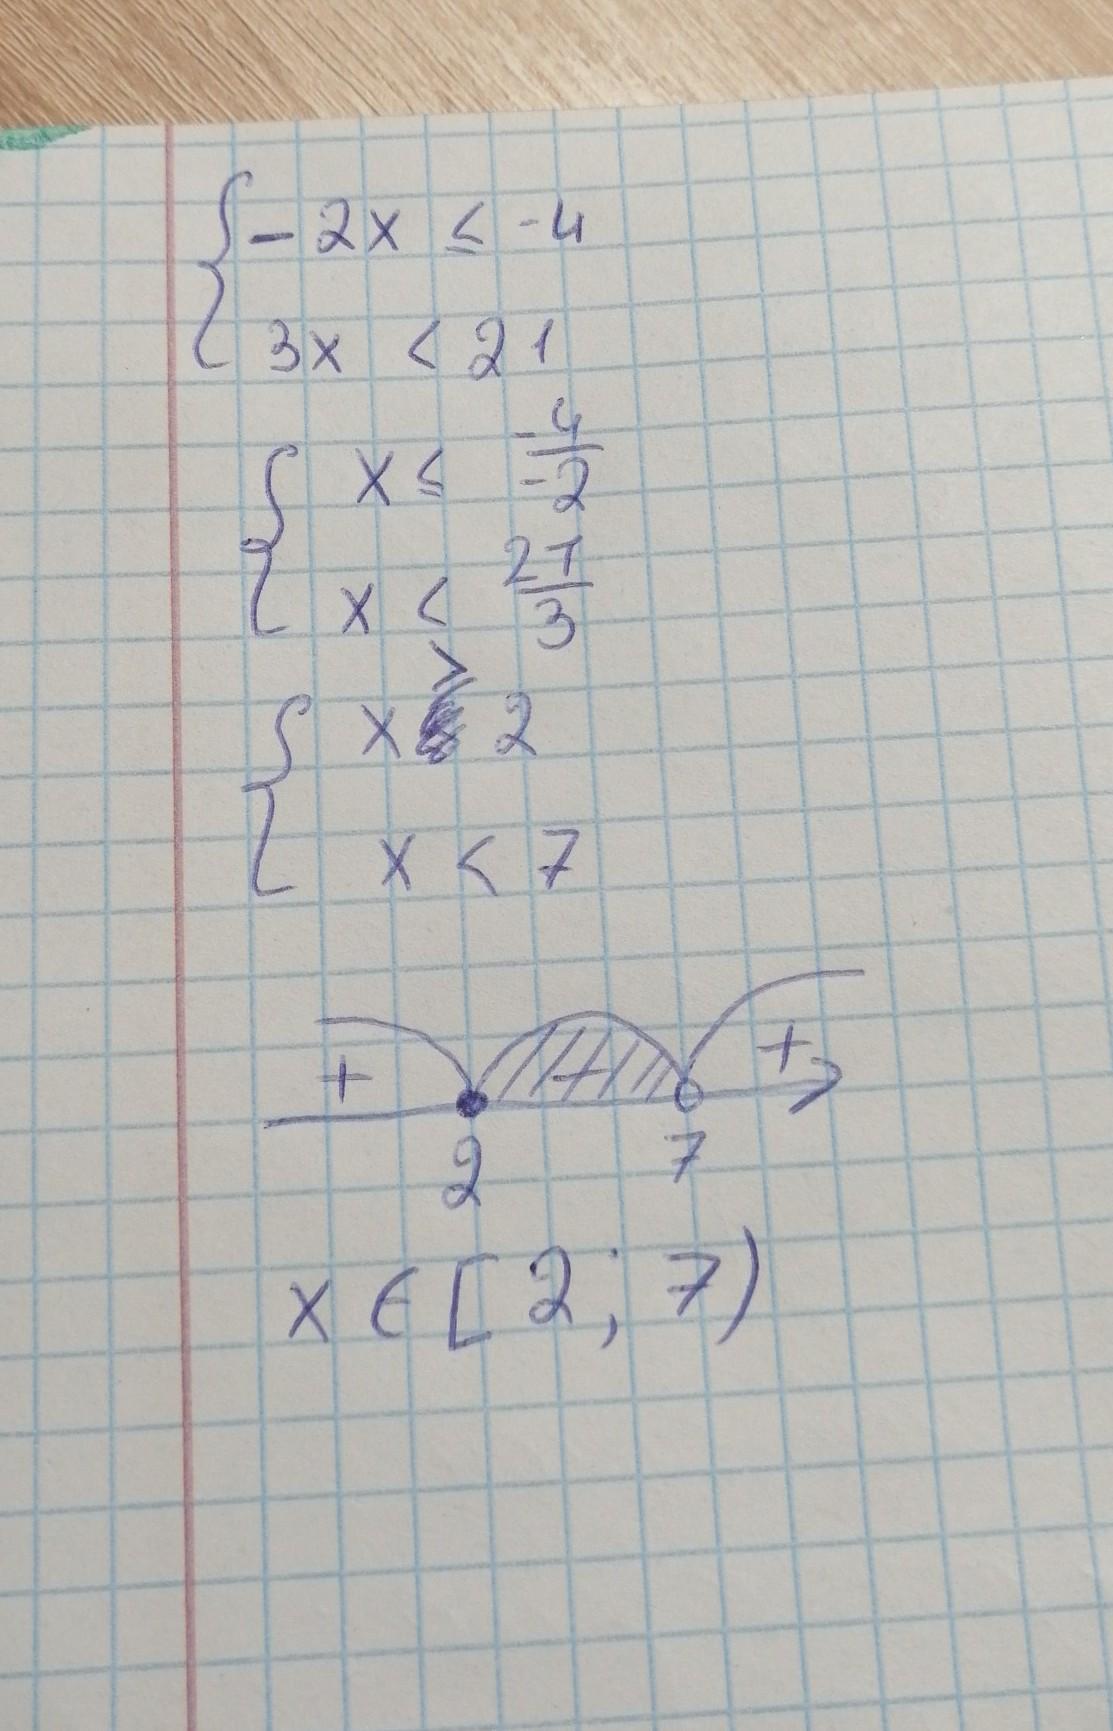 { -2x ≤ -4
3x < 21
{ x ≤ -4/-2
x < 21/3
{ x ≥ 2
x < 7
+ + +
2 7
x ∈ [2; 7)